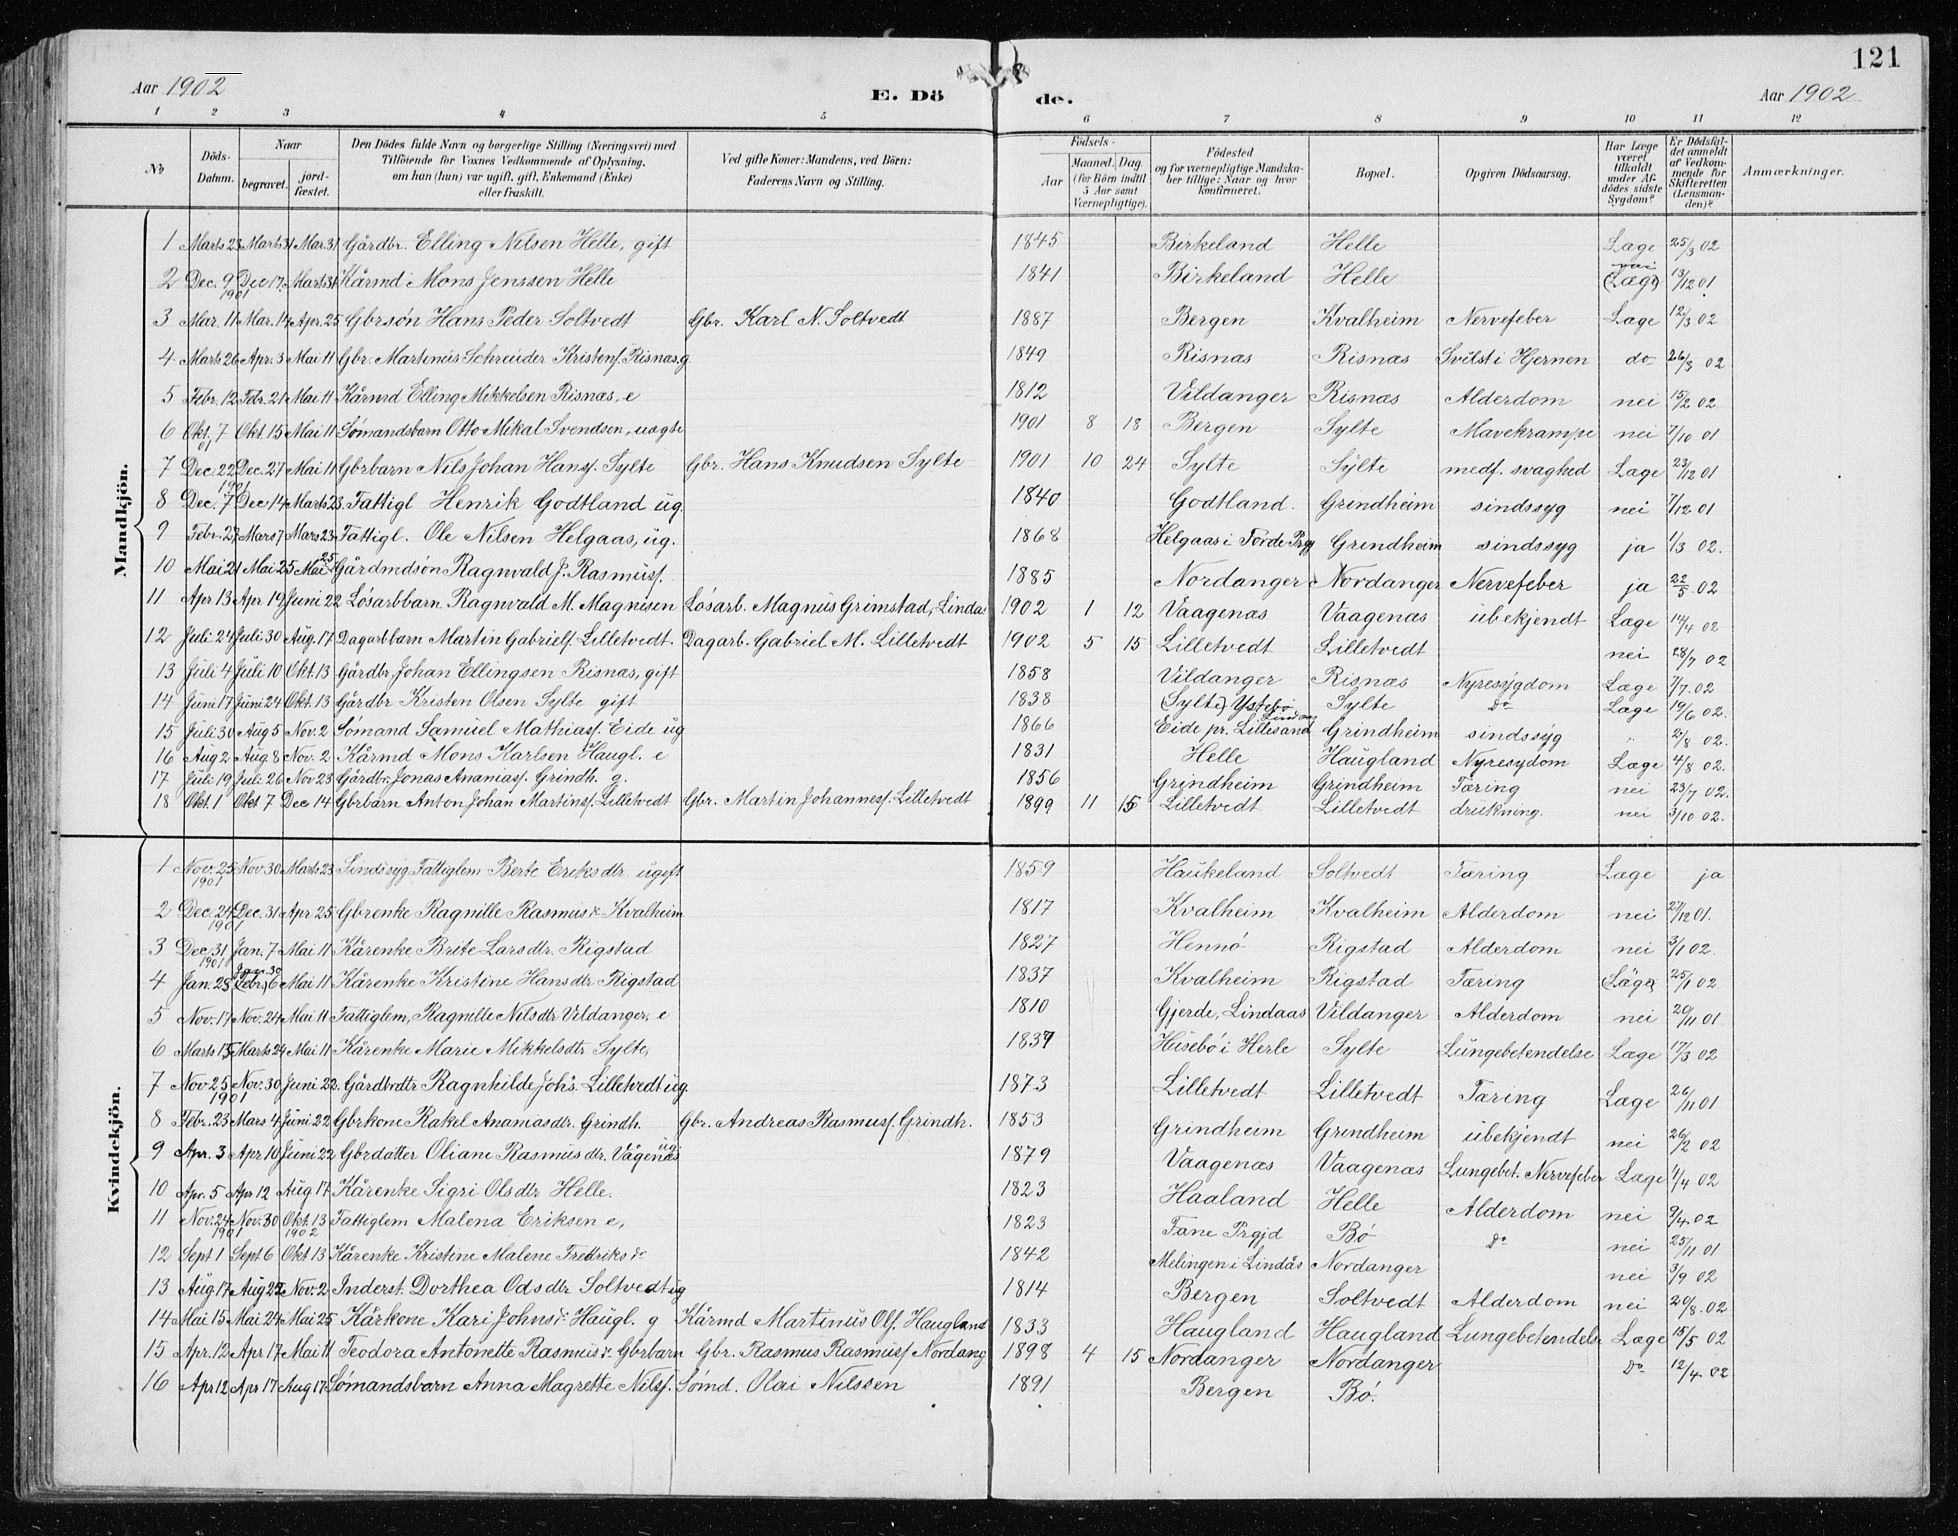 121
Aar 1902 E. Dö de. Aar 1902
1 2 3 4 5 6 7 8 9 10 11 12
№ Döds-Datum. Naar begravet. jord-fæstet. Den Dödes fulde Navn og borgerlige Stilling (Næringsvei) med Tilföiende for Voxnes Vedkommende af Oplysning, om han (hun) var ugift, gift, Enkemand (Enke) eller fraskilt. Ved gifte Koner: Mandens, ved Börn: Faderens Navn og Stilling. Födsels- Aar Maaned. Dag. (for Börn indtil 5 Aar samt Værnepligtige). Födested og for værnepligtige Mandskaber tillige: Naar og hvor konfirmeret. Bopæl. Opgiven Dödsaarsag. Har Læge været tilkaldt under Afdödes sidste Sygdom? Er Dödsfaldet anmeldt af Vedkommende for Skifteretten (Lensmanden)? Anmærkninger.
Mandkjön.
1 Marts 23 Marts 31 Mar. 31 Gårdbr. Elling Nilsen Helle, gift 1845 Birkeland Helle Læge 25/3 02
2 Dec. 9 1901 Dec 17 Marts 31 Kårmd Mons Jenssen Helle 1841 Birkeland Helle nei (Læge) 13/12 01
3 Mar. 11 Mar. 14 Apr. 25 Gbrsøn Hans Peder Soltvedt Gbr. Karl N. Soltvedt 1887 Bergen Kvalheim Nervefeber Læge 12/3 02
4 Marts 26 Apr. 3 Mai 11 Gbr. Martinus Schreuder Kristens. Risnæs, g 1849 Risnæs Risnæs Svulst i Hjernen do 26/3 02
5 Febr. 12 Febr. 21 Mai 11 Kårmd Elling Mikkelsen Risnæs, e 1812 Vildanger Risnæs Alderdom nei 15/2 02
6 Okt. 7 01 Okt. 15 Mai 11 Sømandsbarn Otto Mikal Svendsen, uægte 1901 8 18 Bergen Sylte Mavekrampe nei 7/10 01
7 Dec. 22 1901 Dec. 27 Mai 11 Gbrbarn Nils Johan Hanss. Sylte Gbr. Hans Knudsen Sylte 1901 10 24 Sylte Sylte medf. svaghed Læge 23/12 01
8 Dec. 7 Dec 14 Marts 23 Fattigl Henrik Godtland ug. 1840 Godtland. Grindheim sindssyg nei 7/12 01
9 Febr. 27 Mars 7 Mars 23 Fattigl. Ole Nilsen Helgaas, ug. 1868 Helgaas i Førde Prgj Grindheim sindssyg ja 1/3 02.
10 Mai 21 Mai 25 Mai 25 Gårdmdsøn Ragnvald J. Rasmuss. 1885 Nordanger Nordanger Nervefeber ja 22/5 02
11 Apr 13 Apr 19 Juni 22 Løsarbbarn Ragnvald M. Magnisen Løsarb. Magnus Grimstad, Lindås 1902 1 12 Vaagenæs Vaagenæs ubekjendt Læge 14/4 02
12 Juli 24 Juli 30 Aug. 17 Dagarbbarn Martin Gabriels. Lilletvedt. Dagarb. Gabriel M. Lilletvedt 1902 5 15 Lilletvedt Lilletvedt nei 28/7 02
13 Juli 4 Juli 10 Okt. 13 Gårdbr. Johan Ellingsen Risnæs, gift 1858 Vildanger Risnæs Nyresygdom Læge 7/7 02
14 Juni 17 Juni 24 Okt. 13 Gårdbr Kristen Olsen Sylte gift 1838 (Sylte) Ystebø Lindaas Sylte do Læge 19/6 02.
15 Juli 30 Aug 5 Nov. 2 Sømand Samuel Mathiass. Eide ug 1866 Eide pr. Lillesand Grindheim sindssyg " 2/8 02.
16 Aug 2 Aug. 8 Nov. 2 Kårmd Mons Karlsen Haugl. e 1831 Helle Haugland Nyresydom Læge 4/8 02.
17 Juli 19 Juli. 26 Nov 23 Gårdbr. Jonas Ananias. Grindh. g. 1856 Grindheim Grindheim Tæring nei 23/7 02.
18 Okt. 1 Okt 7 Dec 14 Gbrbarn Anton Johan Martins. Lilletvedt Gbr. Martin Johanness. Lilletvedt 1899 11 15 Lilletvedt Lilletvedt drukning. nei 3/10 02.
Kvindekjön.
1 Nov. 25 1901 Nov 30 Marts 23 Sindssyg Fattiglem Berte Eriksdtr. ugift 1859 Haukeland Soltvedt Tæring Læge ja
2 Dec. 24 1901 Dec. 31 Apr 25 Gbrenke Ragnille Rasmusdr Kvalheim 1817 Kvalheim Kvalheim Alderdom nei 27/12 01.
3 Dec. 31 1901 Jan. 7 Mai 11 Kårenke Brite Larsdtr. Rigstad 1827 Hennø Rigstad Alderdom nei 3/1 02.
4 Jan. 23 Jan. 30 (Febr.) 6 Mai 11 Kårenke Kristine Hansdtr Rigstad 1837 Kvalheim Rigstad Tæring (Läge) 25/1 02
5 Nov. 17 Nov. 24 Mai 11 Fattiglem, Ragnille Nilsdtr Vildanger, e 1810 Gjerde, Lindaas Vildanger Alderdom nei 20/11 01
6 Marts 15 Marts 24 Mai 11 Kårenke Marie Mikkelsdtr Sylte, 1837 Husebø i Herle Sylte Lungebetendelse Læge 17/3 02
7 Nov. 25 1901 Nov. 30 Juni 22. Gårdbrdtr Ragnhilde Johs. Lilletvedt ug. 1873 Lilletvedt Lilletvedt Tæring Læge 26/11 01
8 Febr. 23 Mars 4 Juni 22 Gbrkone Rakel Ananiasdtr. Grindh. Gbr. Andreas Rasmuss. Grindh. 1853 Grindheim Grindheim ubekjendt nei 26/2 02
9 Apr. 3 Apr 10 Juni 22 Gbrdatter Oliane Rasmusdtr. Vågenæs ug 1879 Vaagenæs Vaagenæs Lungebet. Nervefeber Læge 4/4 02
10 Apr. 5 Apr 12 Aug 17 Kårenke Sigri Olsdtr Helle. 1823 Haaland Helle Alderdom nei 9/4 02
11 Nov. 24 1901 Nov. 30 Okt. 13 1902 Fattiglem Malena Eriksen e, 1823 Fane Prgjd Bø do nei 25/11 01
12 Sept 1 Sept 6 Okt 13 Kårenke Kristine Malene Fredriksdr 1842 Melingen i Lindås Nordanger nei 3/9 02
13 Aug. 17 Aug 22 Nov. 2 Inderst. Dorthea Odsdtr Soltvedt ug 1814 Bergen Soltvedt Alderdom nei 20/8 02
14 Mai 15 Mai 24 Mai 25 Kårkone Kari Johnsdr. Haugl. g Kårmd Martinus Ols. Haugland 1833 Haugland Haugland Lungebetendelse Læge 15/5 02
15 Apr. 12 Apr 17 Mai 11 Teodora Antonette Rasmusdr. Gbrbarn Gbr. Rasmus Rasmuss Nordang 1898 4 15 Nordanger Nordanger do 12/4 02
16 Apr 12 Apr 17 Aug 17 Sømandsbarn Anna Magrette Nilss. Sømd. Olai Nilssen 1891 Bergen Bø.